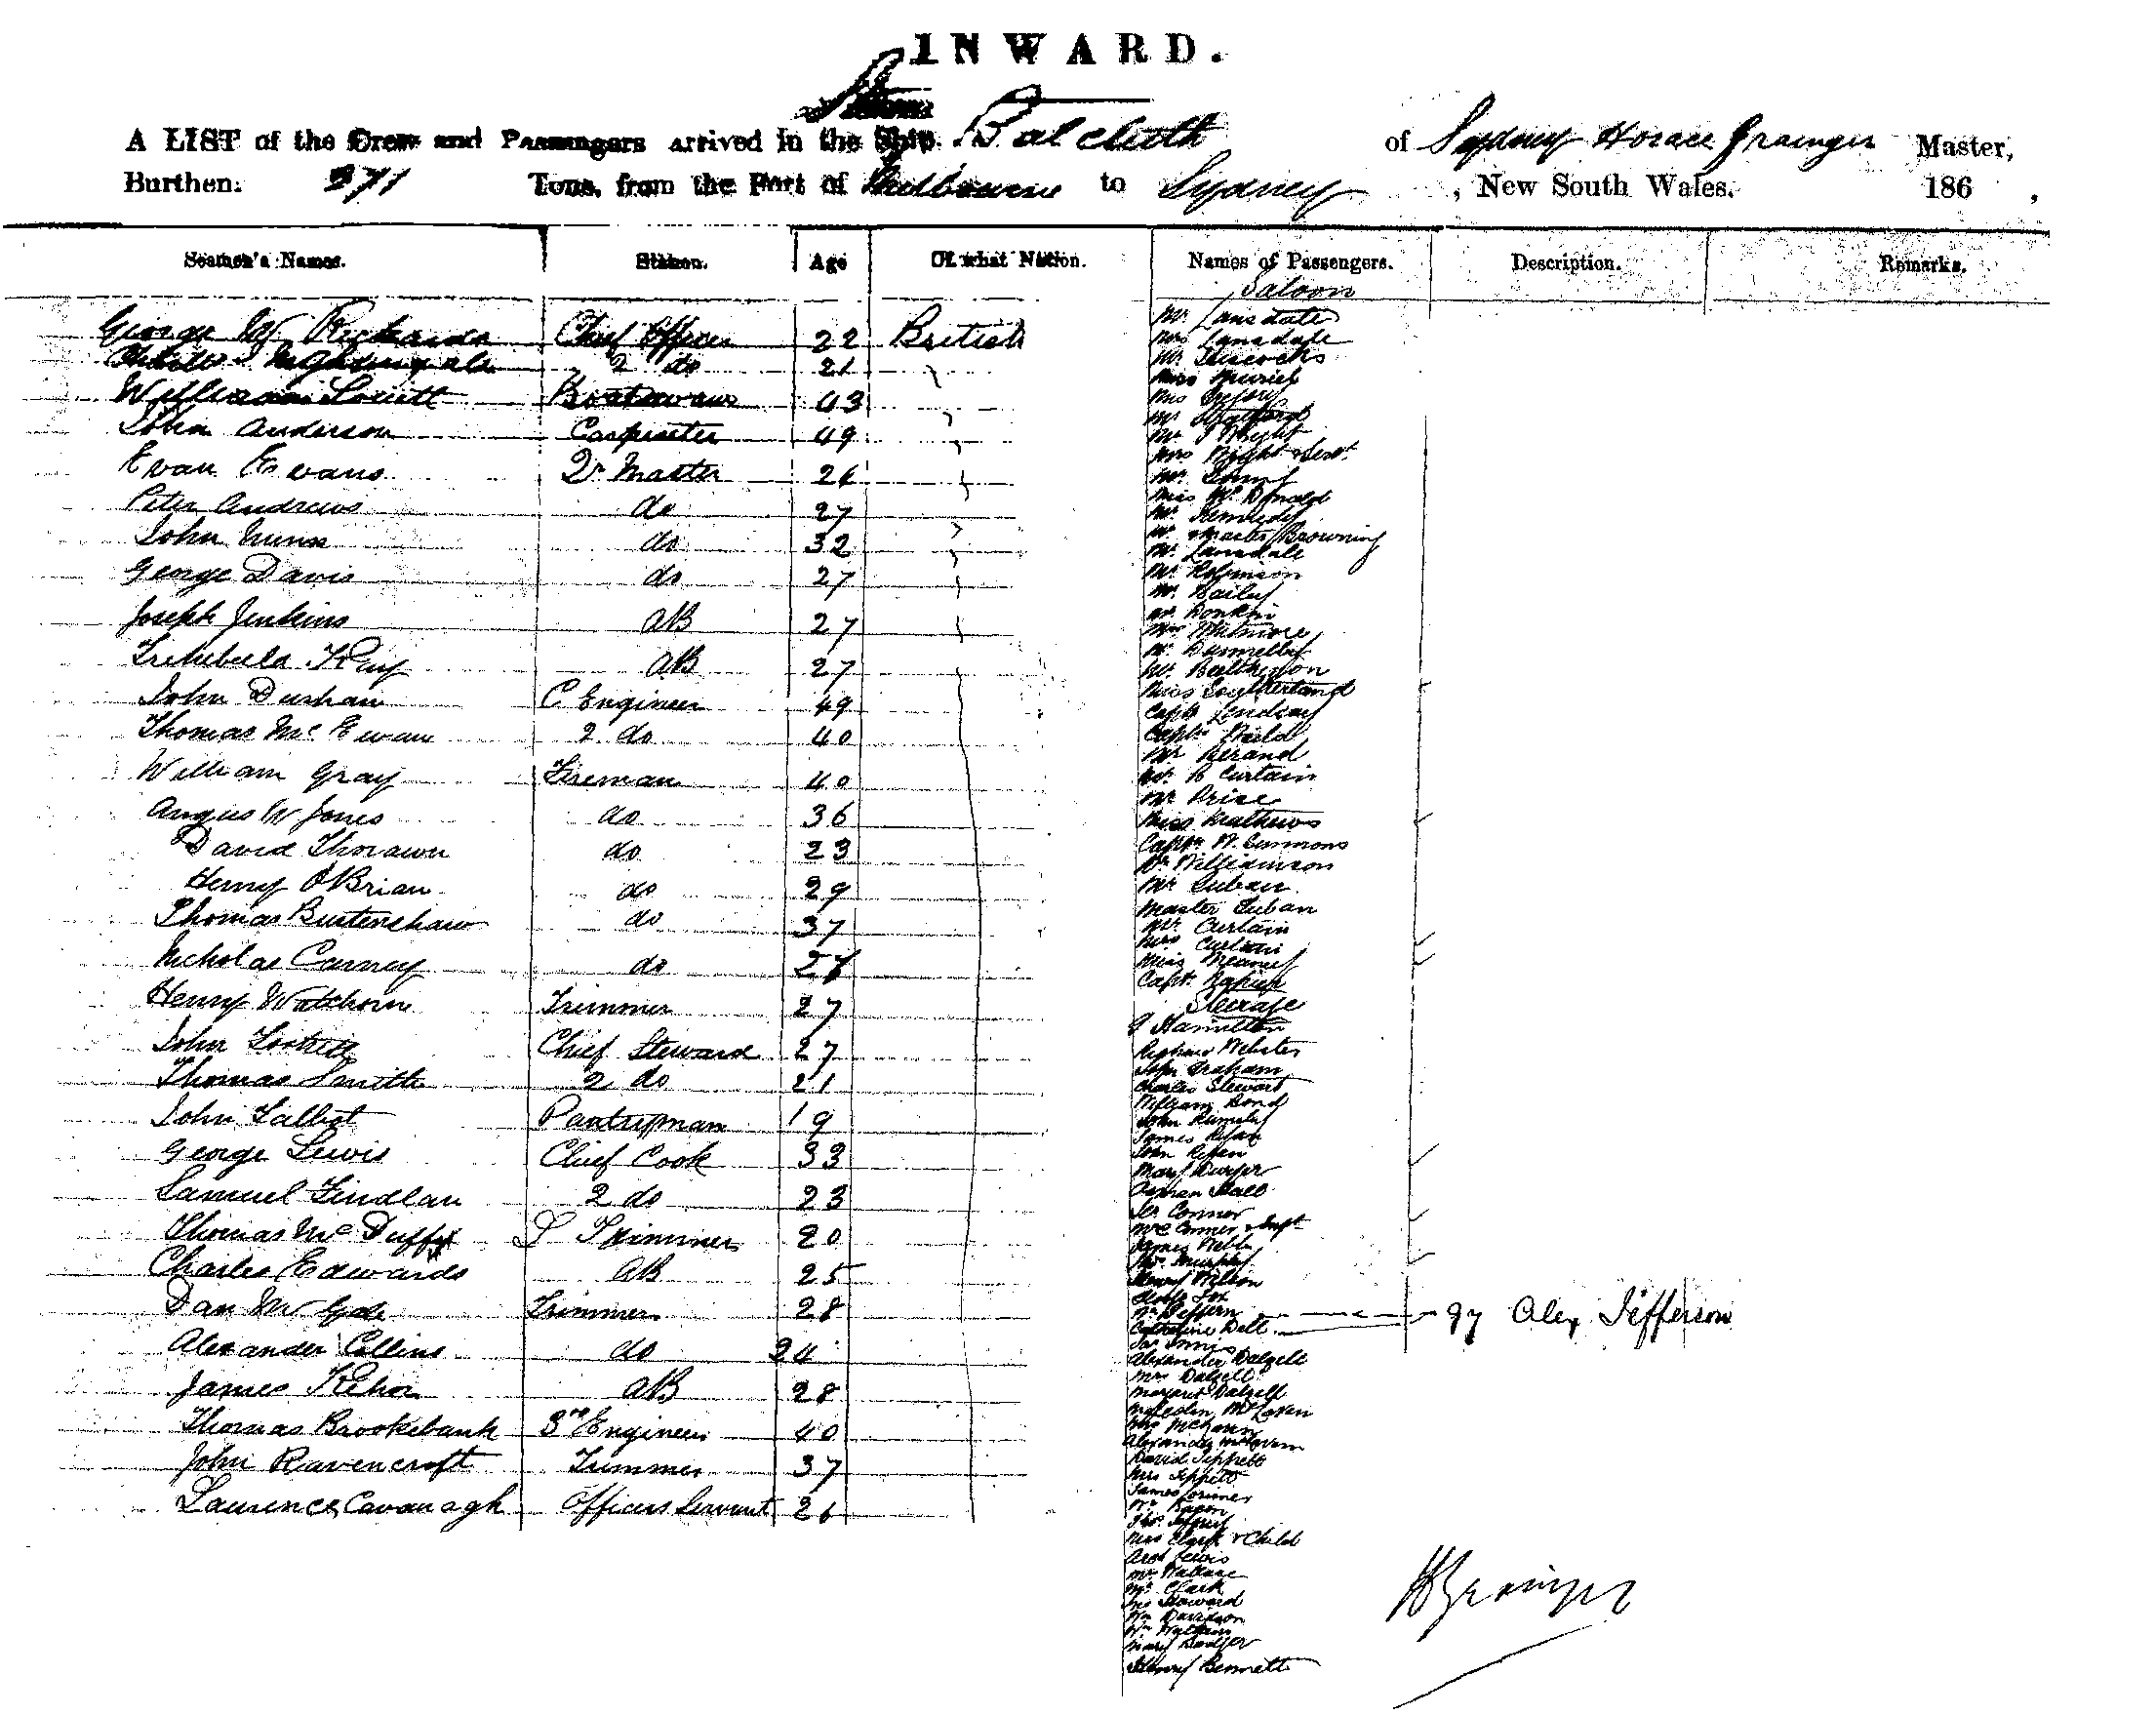 INWARD.
Steam
A LIST of the Crew and Passengers arrived in the Ship Balclutha of Sydney Horace Grainger Master,
Burthen 371 Tons, from the Port of Melbourne to Sydney, New South Wales. 186 ,
Seamen's Names. Station. Age Of what Nation. Names of Passengers. Description. Remarks.
George W Richards Chief Officer 22 British
2 do 21
William Lovitt Boatswain 43
John Anderson Carpenter 49
Evan Evans Qr Master 26
Peter Andrews do 27
John Nunn do 32
George Davis do 27
Joseph Jenkins AB 27
AB 27
John Durham C Engineer 49
Thomas McEwan 2 do 40
William Gray Fireman 40
Angus W Jones do 36
David Thorawn do 23
Henry O'Brian do 29
Thomas Burtenshaw do 37
Nicholas Carney do 27
Henry Watchorn Trimmer 27
John Chief Steward 27
Thomas Smith 2 do 21
John Talbot Pantryman 19
George Lewis Chief Cook 33
Samuel Findlan 2 do 23
Thomas McDuffy S Trimmer 20
Charles Edwards AB 25
Dan Trimmer 28
Alexander Collins do 24
James Kehoe AB 28
Thomas Brookebank 3rd Engineer 40
John Ravencroft Trimmer 37
Laurence Cavanagh Officers Servant 26
Saloon
Mr Lansdale
Mrs Lansdale
Mr Hiscocks
Miss Muriel
Mrs Gregory
Mr
Mr J Wright
Mrs Wright & Servt
Mr
Miss McDonald
Mr Kennedy
Mr Master Browning
Mr Lansdale
Mr Robinson
Mr Bailey
Mr Donkin
Mrs Whitmore
Mr Dunnelly
Mr
Miss Southerland
Capt Lindsay
Captn Neild
Mr Berand
Mr B Curtain
Mr Price
Miss Mathews
Captn W. Simmons
Dr Williamson
Mr Luban
Master Luban
Mr Curtain
Mrs Curtain
Miss Meaney
Captn
Steerage
J Hamilton
Webster
John Graham
Charles Stewart
William Bond
John
James Ryan
John Ryan
Mary
Jer Connor
Mrs Connor & Inft
James Webb
Thos Murphy
Henry Wilson
Fox
Mr Jeffern — — — qy Alex Jefferson
Catherine Dell
Jas Innes
Alexander Dalzell
Mrs Dalzell
Margaret Dalzell
Malcolm McLaren
Mrs
Alexander
David Tippett
Mrs Tippett
James Lorimer
Mr
Thos
Mrs Clark & Child
Lewis
Mr Wallace
Mr Clark
Howard
Wm Davidson
Wm Watkins
Mary Badger
Henry Bennett
H Grainger